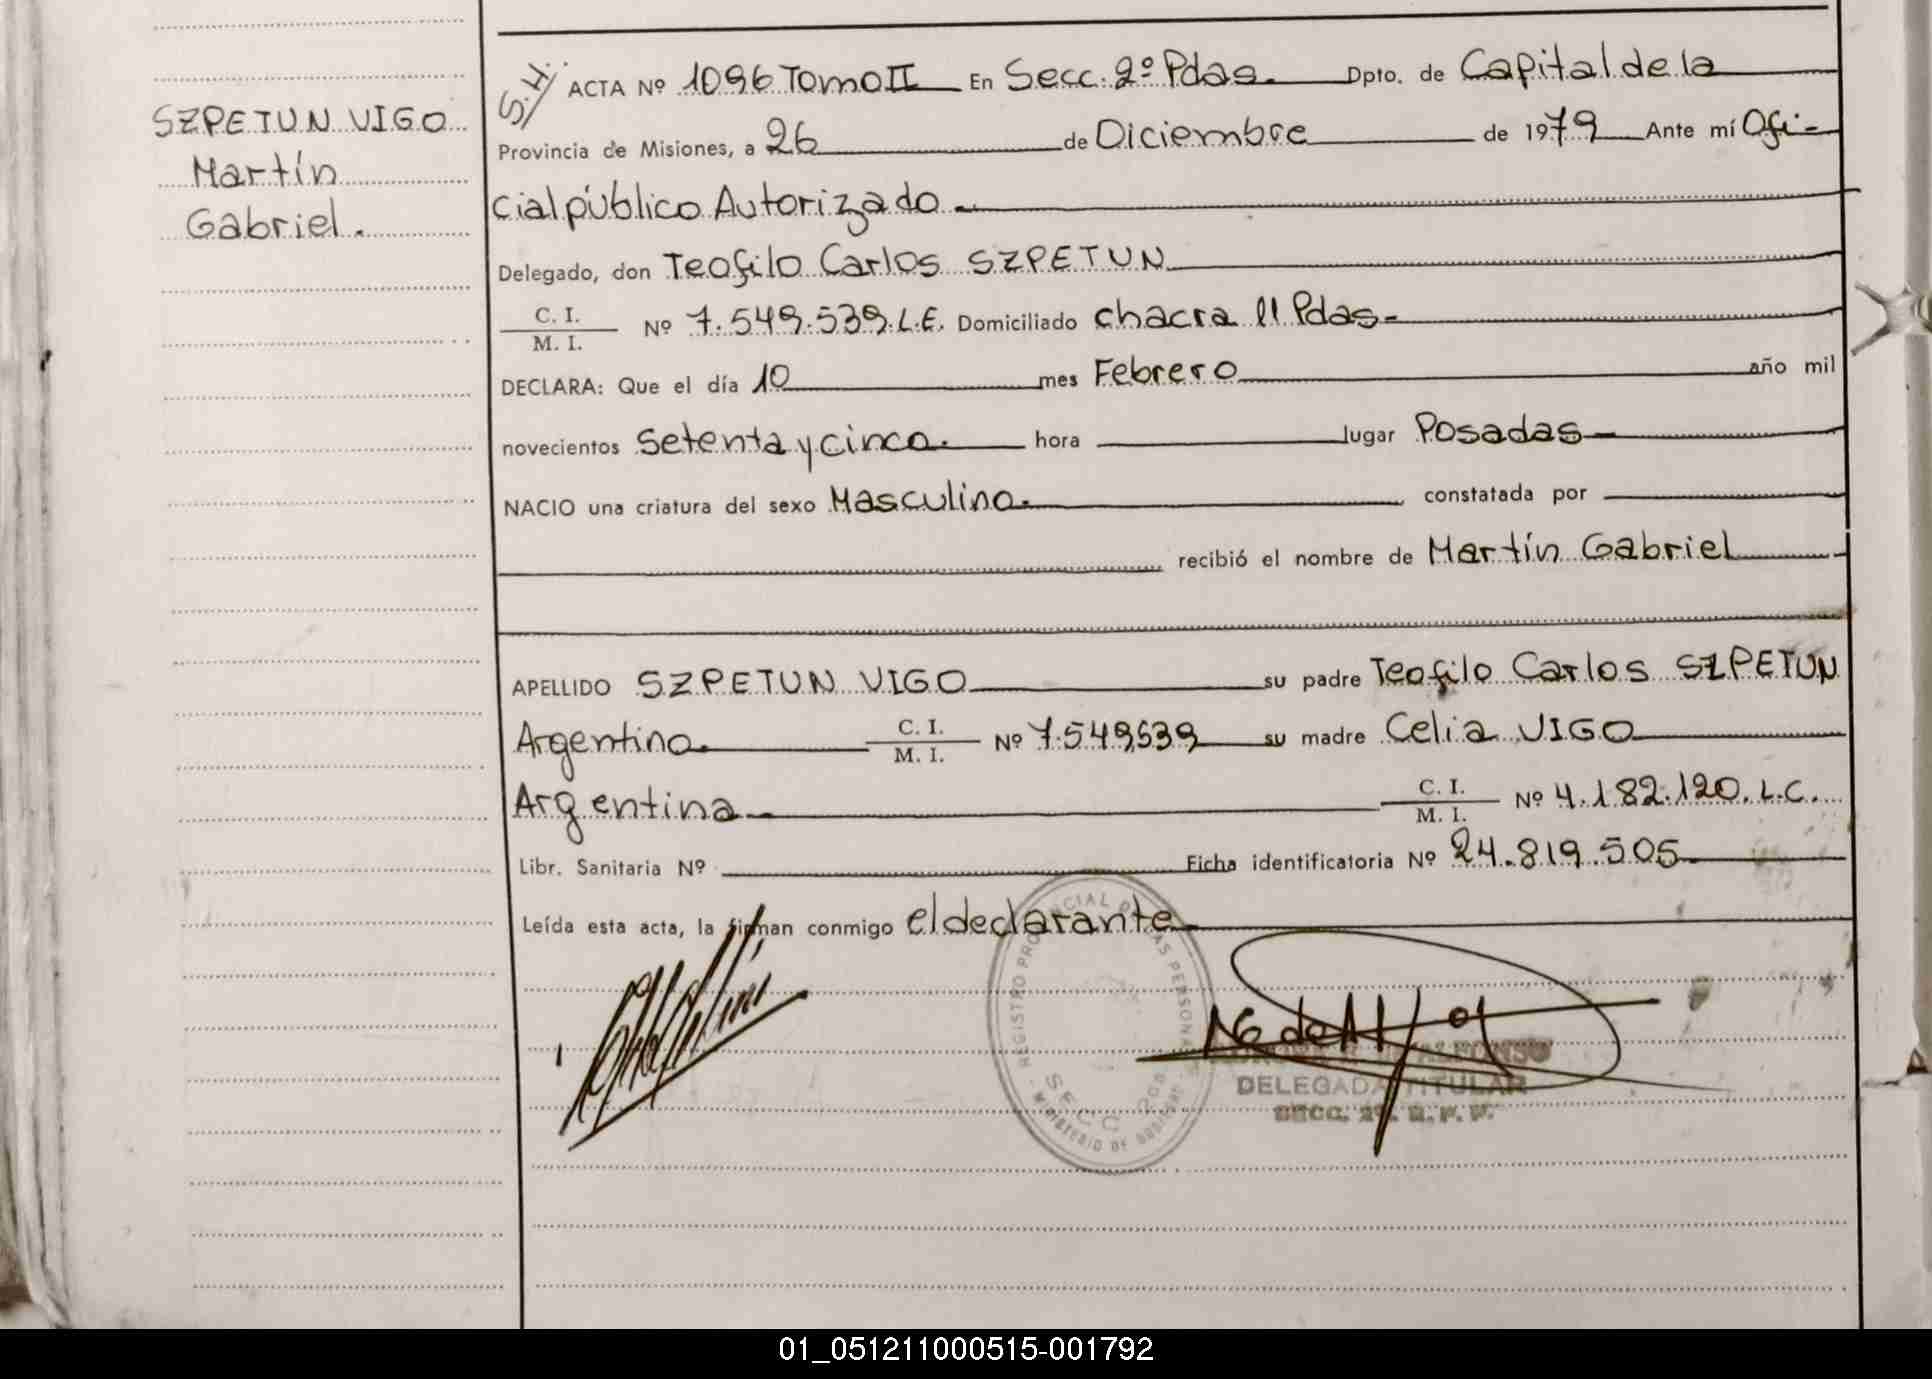 SZPETUN VIGO
Martín
Gabriel.
S.H.
ACTA Nº 1096 Tomo II En Secc. 2º Pdas. Dpto. de Capital de la
Provincia de Misiones, a 26 de Diciembre de 1979 Ante mí Ofi-
cial público Autorizado
Delegado, don Teofilo Carlos SZPETUN
C. I.
M. I. Nº 7.549.539.L.E. Domiciliado chacra 11 Pdas-
DECLARA: Que el día 10 mes Febrero año mil
novecientos Setenta y cinco. hora lugar Posadas
NACIO una criatura del sexo Masculino. constatada por
recibió el nombre de Martín Gabriel
APELLIDO SZPETUN VIGO su padre Teofilo Carlos SZPETUN
Argentino. C. I.
M. I. Nº 7.549539 su madre Celia VIGO
Argentina C. I.
M. I. Nº 4.182.120.L.C.
Libr. Sanitaria Nº Ficha identificatoria Nº 24.819.505
Leída esta acta, la firman conmigo el declarante
REGISTRO PROVINCIAL DE LAS PERSONAS
SECC. 2da
MINISTERIO DE GOBIERNO
ALFONSO
DELEGADA TITULAR
SECC. 2ª. R. P. P.
01_051211000515-001792